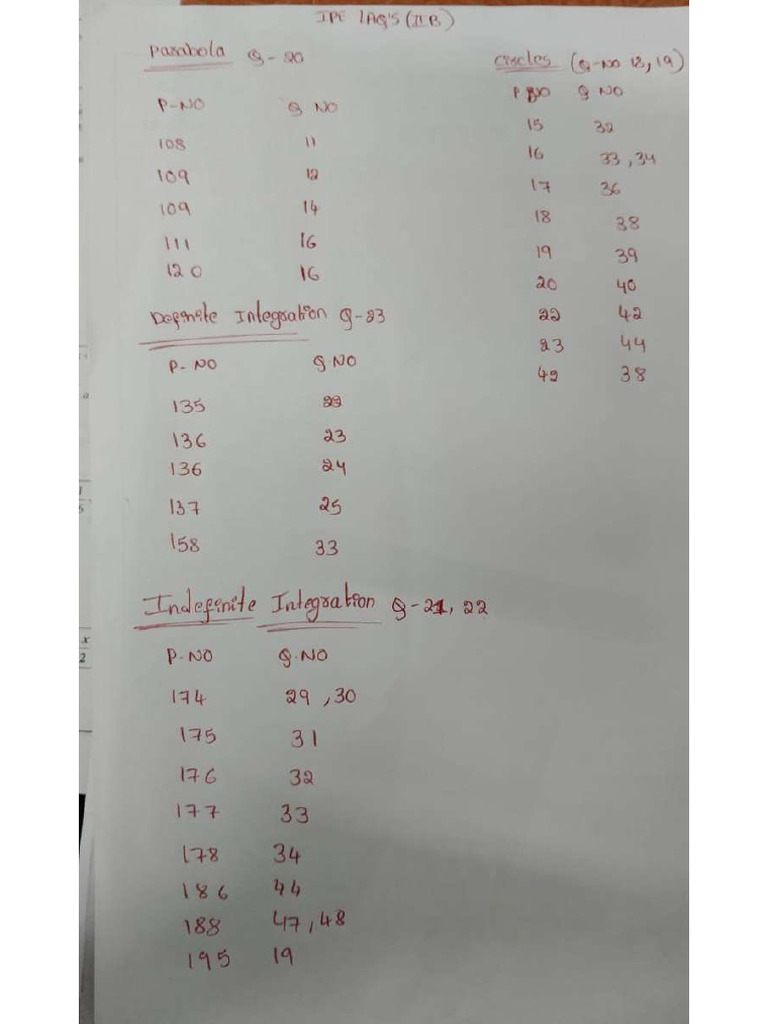 IPE LAQ'S (II B)
Parabola Q - 20
P-NO Q NO
108 11
109 12
109 14
111 16
120 16
Definite Integration Q-23
P-NO Q NO
135 22
136 23
136 24
137 25
158 33
Indefinite Integration Q-21, 22
P-NO Q.NO
174 29, 30
175 31
176 32
177 33
178 34
186 44
188 47, 48
195 19
Circles (Q-NO 18, 19)
P NO Q NO
15 32
16 33, 34
17 36
18 38
19 39
20 40
22 42
23 44
42 38
x
2